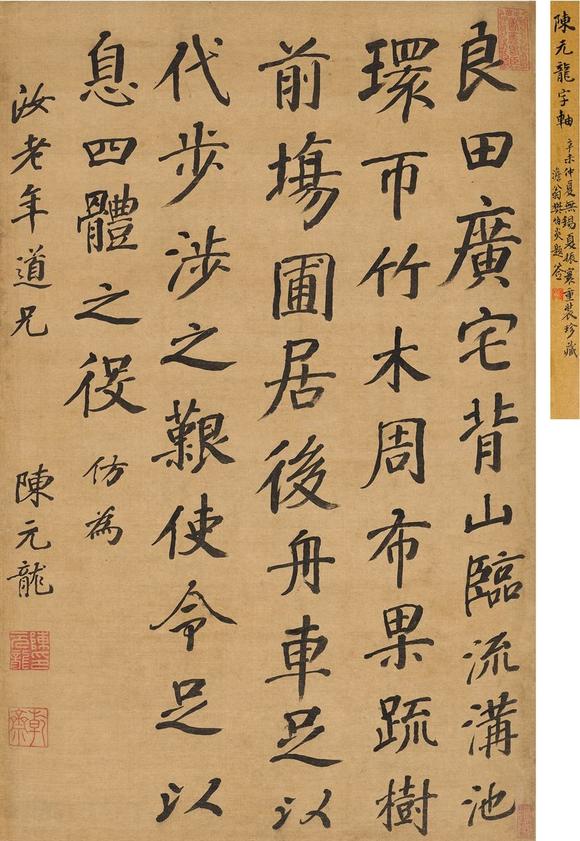 陳元龍字軸
辛未仲夏無錫夏振寰重裝珍藏
樊伯炎題
良田廣宅背山臨流溝池
環帀竹木周布果疏樹
前塲圃居後舟車足以
代步涉之艱使令足以
息四體之役 仿為
汝老年道兄 陳元龍
陳印元龍
乾齋